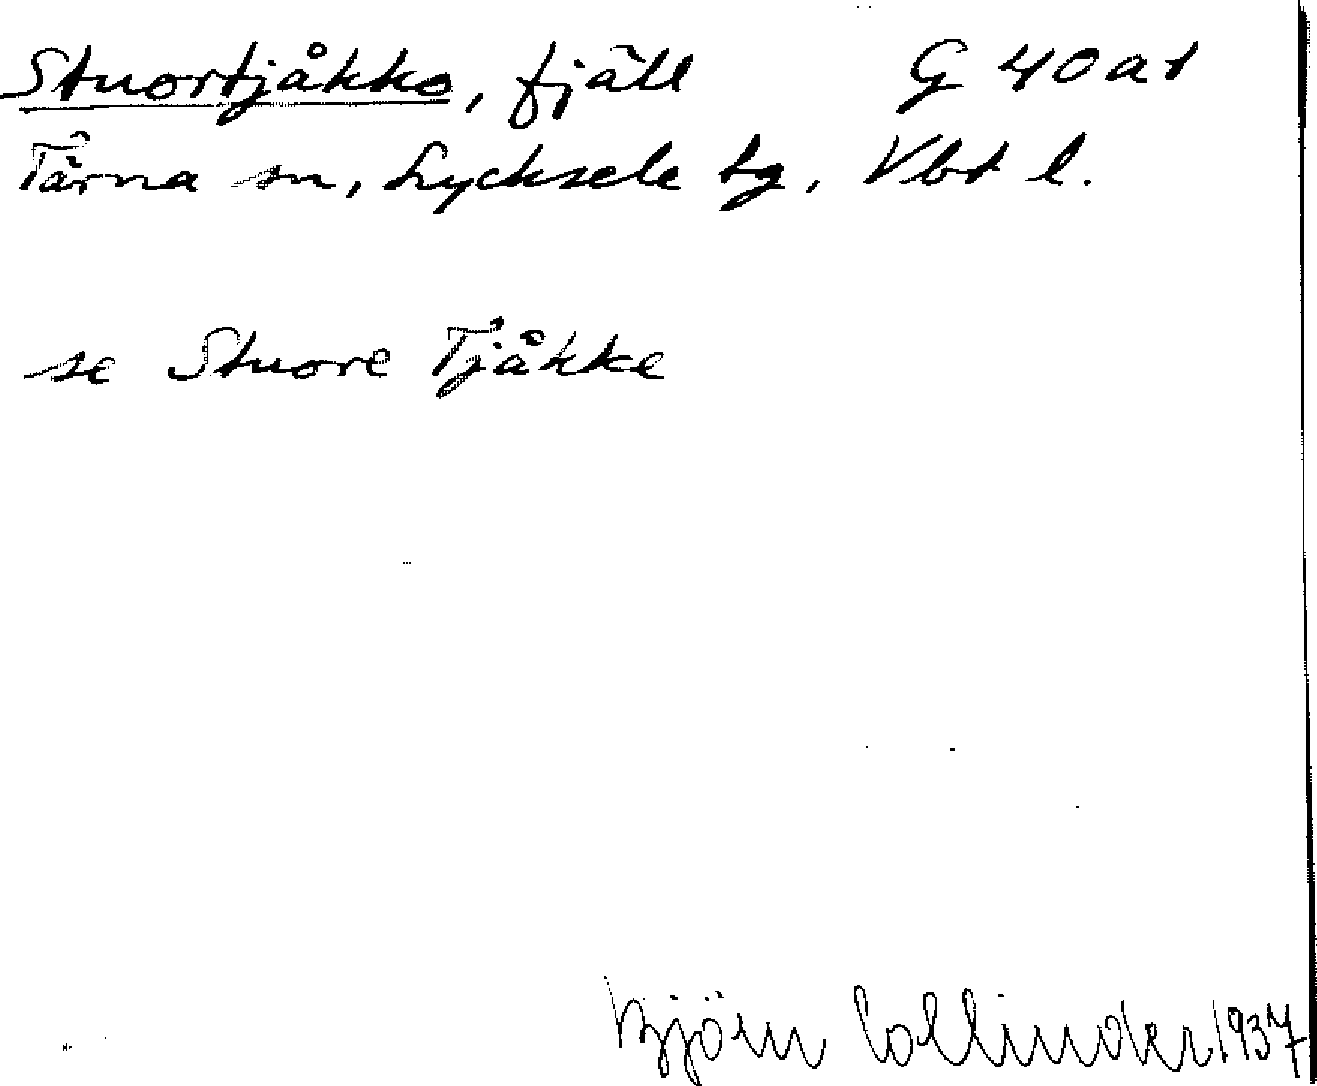 Stuortjåkko, fjäll G 40 a1
Tärna sn, Lycksele tg, Vbt l.
se Stuore Tjåkke
Björn Collinder 1937